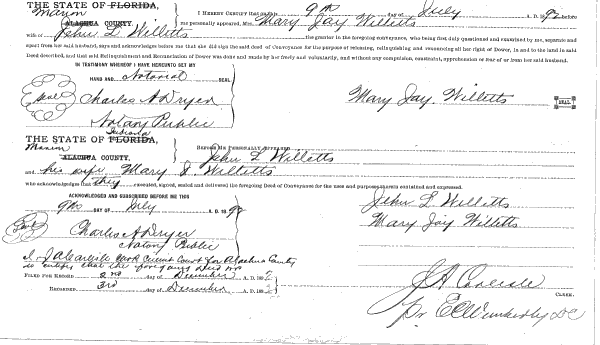 THE STATE OF FLORIDA,
Marion
ALACHUA COUNTY.
I HEREBY CERTIFY That on this 9th day of July A. D. 1892 before
me personally appeared, Mrs. Mary Jay Willetts
wife of John L Willetts the grantor in the foregoing conveyance, who being first duly questioned and examined by me, separate and
apart from her said husband, says and acknowledges before me that she did sign the said deed of Conveyance for the purpose of releasing, relinquishing and renouncing all her right of Dower, in and to the land in said
Deed described, and that said Relinquishment and Renunciation of Dower was done and made by her freely and voluntarily, and without any compulsion, constraint, apprehension or fear of or from her said husband.
IN TESTIMONY WHEREOF I HAVE HEREUNTO SET MY
HAND AND Notarial SEAL
Seal Charles A Dryer
Notary Public
Mary Jay. Willetts SEAL.
Indiana
THE STATE OF FLORIDA,
Marion
ALACHUA COUNTY.
BEFORE ME PERSONALLY APPEARED
John L Willetts
and his wife, Mary J Willetts
who acknowledges that they executed, signed, sealed and delivered the foregoing Deed of Conveyance for the uses and purposes therein contained and expressed.
ACKNOWLEDGED AND SUBSCRIBED BEFORE ME THIS
9th DAY OF July A. D. 1892
Seal Charles A Dryer
Notary Public
John L Willetts
Mary Jay Willetts
I J A Carlisle Clerk Circuit Court for Alachua County
do certify that the foregoing deed was
FILED FOR RECORD 2nd day of December A. D. 1892
RECORDED 3rd day of December A. D. 189
J A Carlisle
CLERK.
pr E C Wimberly D C